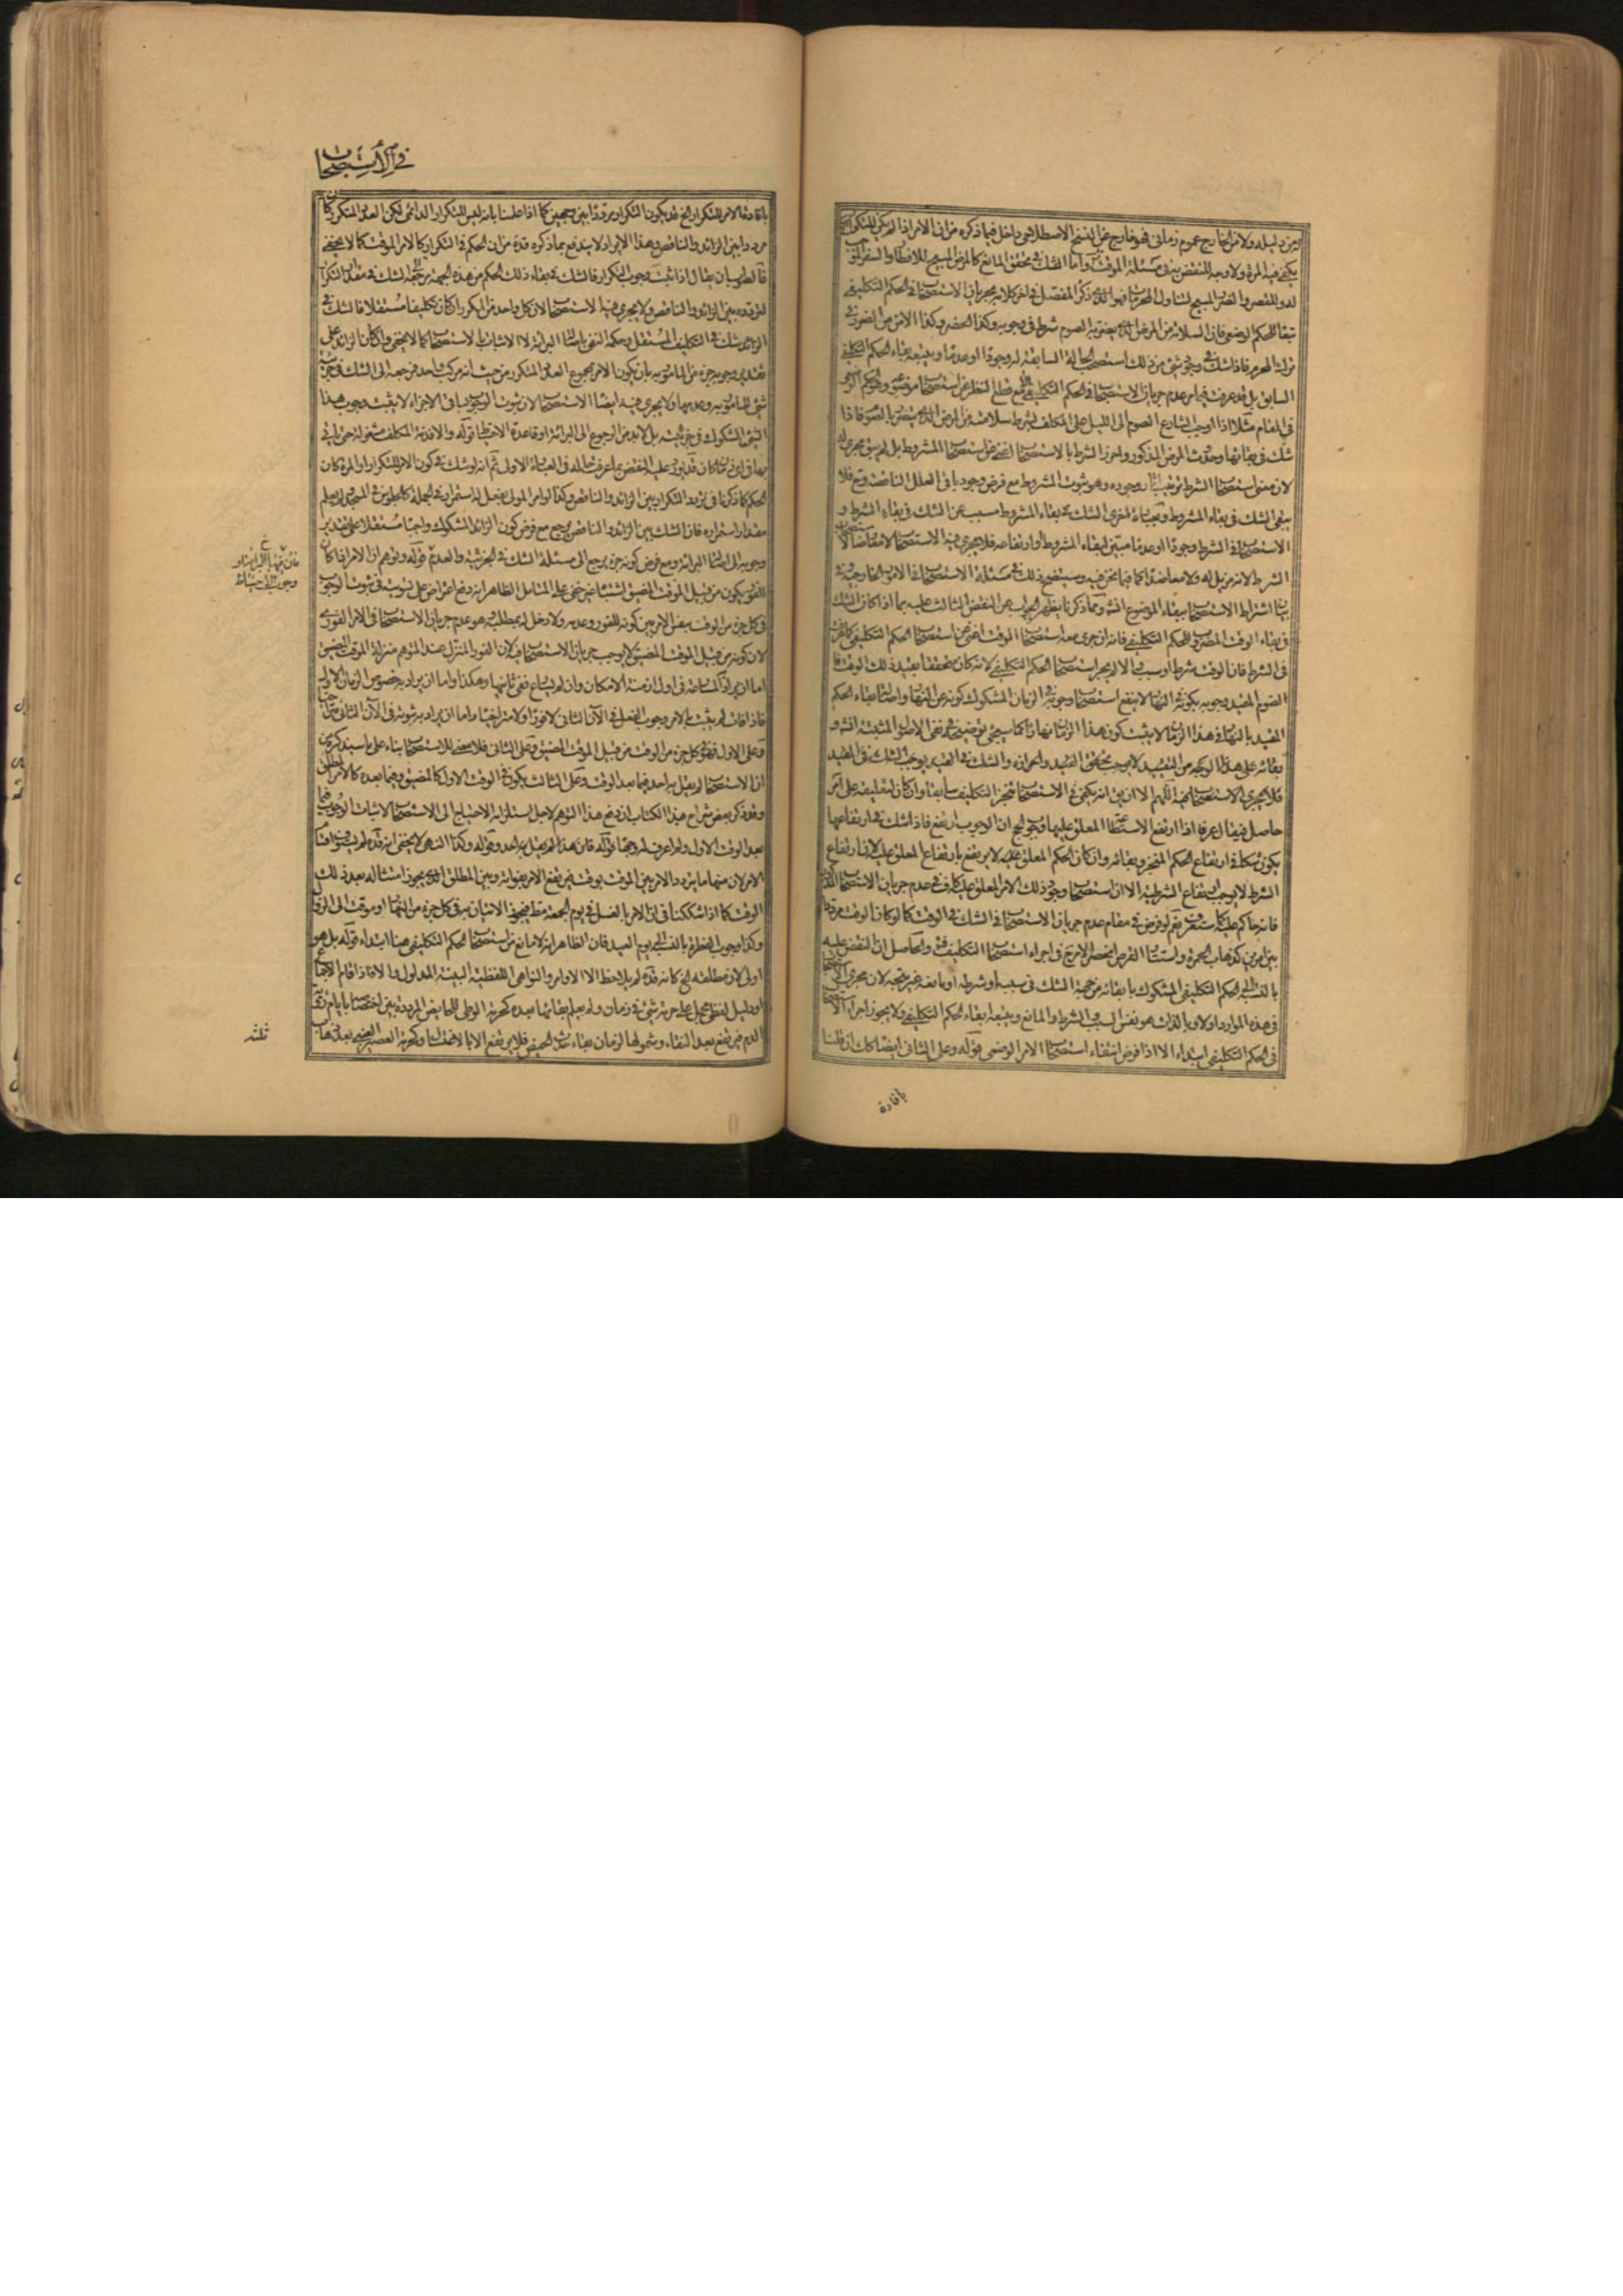 يكفي فيه المرة ولا وجه للنقض به في مسئلة الموقت وأما الشك في تحقق المانع كالمرض المبيح للافطار والسفر الموجب
تبعا للحكم الوضعي فان السلامة من المرض الذي يضر به الصوم شرط في وجوبه وكذا الحضر وكذا الامن من الضرر في
ترك المحرم فاذا شك في وجود شيء من ذلك استصحب الحالة السابقة له وجودا او عدما ويتبعه بقاء الحكم التكليفي
السابق بل قد عرفت فيما مر عدم جريان الاستصحاب في الحكم التكليفي الا مع قطع النظر عن استصحاب موضوعه
في المقام مثلا اذا اوجب الشارع الصوم الى الليل على المكلف بشرط سلامته من المرض الذي يتضرر بالصوم فاذا
شك في بقائها وحدوث المرض المذكور واحرز الشرط بالاستصحاب اغنى عن استصحاب المشروط بل لم يبق مجرى له
لان معنى استصحاب الشرط ترتيب آثار وجوده وهو ثبوت المشروط مع فرض وجود باقي العلل الناقصة وح فلا
يبقى الشك في بقاء المشروط وبعبارة اخرى الشك في بقاء المشروط مسبب عن الشك في بقاء الشرط و
الاستصحاب في الشرط وجودا او عدما مبين لبقاء المشروط او ارتفاعه فلا يجري فيه الاستصحاب لا معارضا لاستصحاب
الشرط لانه مزيل له ولا معاضدا كما فيما نحن فيه وسيتضح ذلك في مسئلة الاستصحاب في الامور الخارجية وفي
بيان اشتراط الاستصحاب ببقاء الموضوع انش ومما ذكرنا يظهر الجواب عن النقض الثالث عليه بما اذا كان الشك
في بقاء الوقت المضروب للحكم التكليفي فانه ان جرى معه استصحاب الوقت اغنى عن استصحاب الحكم التكليفي كما عرفت
في الشرط فان الوقت شرط او سبب والا لم يجر استصحاب الحكم التكليفي لانه كان متحققا بقيد ذلك الوقت فا
الصوم المقيد وجوبه بكونه في النهار لا ينفع استصحاب وجوبه في الزمان المشكوك كونه من النهار واصالة بقاء الحكم
المقيد بالنهار في هذا الزمان لا يثبت كون هذا الزمان نهارا كما سيجيء توضيحه في نفي الاصول المثبتة انش و
فلا يجري الاستصحاب فيه اللهم الا ان يق انه يكفي في الاستصحاب تنجز التكليف سابقا وان كان لتعليقه على امر
حاصل فيقال عرفا اذا ارتفع الاستطاعة المعلق عليها وجوب الحج ان الوجوب ارتفع فاذا شك في ارتفاعها
يكون شكا في ارتفاع الحكم المنجز وبقائه وان كان الحكم المعلق عليه لا يرتفع بارتفاع المعلق عليه لان ارتفاع
الشرط لا يوجب ارتفاع الشرطية الا ان استصحاب وجود ذلك الامر المعلق عليه كاف في عدم جريان الاستصحاب
فانه حاكم عليه كما ستعرف نعم لو فرض في مقام عدم جريان الاستصحاب في الشك في الوقت كما لو كان الوقت مرددا
بين امرين كذهاب الحمرة واستتار القرص انحصر الامر ح في اجراء استصحاب التكليف فت والحاصل ان النقض عليه
بالنسبة الى الحكم التكليفي المشكوك بقائه من جهة الشك في سببه او شرطه او مانعه غير متجه لان مجرى
في هذه الموارد اولا وبالذات هو نفس السبب والشرط والمانع ويتبعه ابقاء الحكم التكليفي ولا يجوز اجراء
في الحكم التكليفي ابتداء الا اذا فرض انتفاء استصحاب الامر الوضعي قوله وعلى الثاني ايضا كك ان قلنا
بافادة
في الأستصحاب
بافادة الامر للتكرار الخ قد يكون التكرار مرددا بين وجهين كما اذا علمنا بانه ليس للتكرار الدائمي لكن العدد المتكرر كان
مرددا بين الزائد والناقص وهذا الايراد لا يندفع بما ذكره قده من ان الحكم في التكرار كالامر الموقت كما لا يخفى
فالصواب ان يقال اذا ثبت وجوب التكرار فالشك في بقاء ذلك الحكم من هذه الجهة مرجعه الى الشك في مقدار التكرار
لتردده بين الزائد والناقص ولا يجري فيه الاستصحاب لان كل واحد من المكرر ان كان تكليفا مستقلا فالشك في
الزائد شك في التكليف المستقل وحكمه النفي باصالة البرائة لا الاثبات بالاستصحاب كما لا يخفى وان كان الزائد على
تقدير وجوبه جزء من المامور به بان يكون الامر بمجموع العدد المتكرر من حيث انه مركب واحد فمرجعه الى الشك في جزئية
شيء للمامور به وعدمها ولا يجري فيه ايضا الاستصحاب لان ثبوت الوجوب لباقي الاجزاء لا يثبت وجوب هذا
الشيء المشكوك في جزئيته بل لا بد من الرجوع الى البرائة او قاعدة الاحتياط قوله والا فذمة المكلف مشغولة حتى ياتي
بها في اي زمان كان قد يورد عليه النقض بما عرفت حاله في العبارة الاولى ثم انه لو شك في كون الامر للتكرار او المرة كان
الحكم كما ذكرنا في تردد التكرار بين الزائد والناقص وكذا لو امر المولى بفعل له استمرار في الجملة كالجلوس في المسجد ولم يعلم
مقدار استمراره فان الشك بين الزائد والناقص يرجع مع فرض كون الزائد المشكوك واجبا مستقلا على تقدير
وجوبه الى اصالة البرائة ومع فرض كونه جزء يرجع الى مسئلة الشك في الجزئية وعدمها قوله وتوهم ان الامر اذا كان
للفور يكون من قبيل الموقت المضيق اشتباه غير خفي على المتامل الظاهر انه دفع اعتراض على تسويته في ثبوت الوجوب
في كل جزء من الوقت بنفس الامر بين كونه للفور وعدمه ولا دخل له بمطلبه وهو عدم جريان الاستصحاب في الامر الفوري
لان كونه من قبيل الموقت المضيق لا يوجب جريان الاستصحاب فيه لان الفور المنزل عند المتوهم منزلة الموقت المضيق
اما ان يراد به المسارعة في اول ازمنة الامكان وان لم يسارع ففي ثانيها وهكذا واما ان يراد به خصوص الزمان الاول
فاذا فات لم يثبت بالامر وجوب الفعل في الآن الثاني لا فورا ولا متراخيا واما ان يراد به ثبوته في الآن الثاني متراخيا
وعلى الاول فهو في كل جزء من الوقت من قبيل الموقت المضيق وعلى الثاني فلا معنى للاستصحاب بناء على ما سيذكره من
ان الاستصحاب لم يقل به احد فيما بعد الوقت وعلى الثالث يكون في الوقت الاول كالمضيق وفيما بعده كالامر المطلق
وقد ذكر بعض شراح هذا الكتاب ان دفع هذا التوهم لاجل استلزامه الاحتياج الى الاستصحاب لاثبات الوجوب فيما
بعد الوقت الاول ولم اعرف له وجها قوله فان هذا لم يقل به احد وقوله وكذا النهي لا يخفى انه قده
الامر لان منهما ما يتردد الامر بين الموقت بوقت فيرتفع الامر بفواته وبين المطلق الذي يجوز امتثاله بعد ذلك
الوقت كما اذا شككنا في ان الامر بالغسل في يوم الجمعة مطلق فيجوز الاتيان به في كل جزء من النهار او موقت الى الزوال
وكذا وجوب الفطرة بالنسبة الى يوم العيد فان الظاهر انه لا مانع من استصحاب الحكم التكليفي هنا ابتداء قوله بل هو
اولى لان مطلقه الخ كانه قده لم يلاحظ الا الاوامر والنواهي اللفظية البينة المدلول والا فاذا قام الاجماع
او دليل لفظي مجمل على حرمة شيء في زمان ولم يعلم بقائها بعده كحرمة الوطي للحايض المرددة بين اختصاصها بايام رؤية
الدم فيرتفع بعد النقاء وشمولها لزمان بقاء حدث الحيض فلا يرتفع الا بالاغتسال وكحرمة العصير العنبي بعد ذهاب
ثلثيه